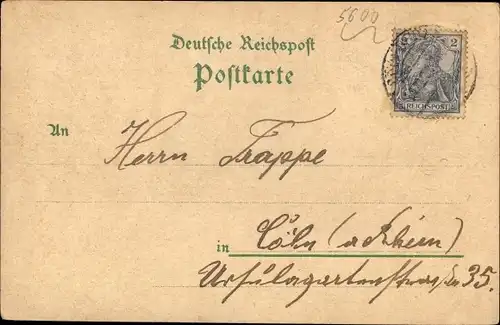 5600
Deutsche Reichspost
Postkarte
2
REICHSPOST
An
Herrn Trappe
in Cöln (a Rhein)
Ursulagartenstrasse 35.